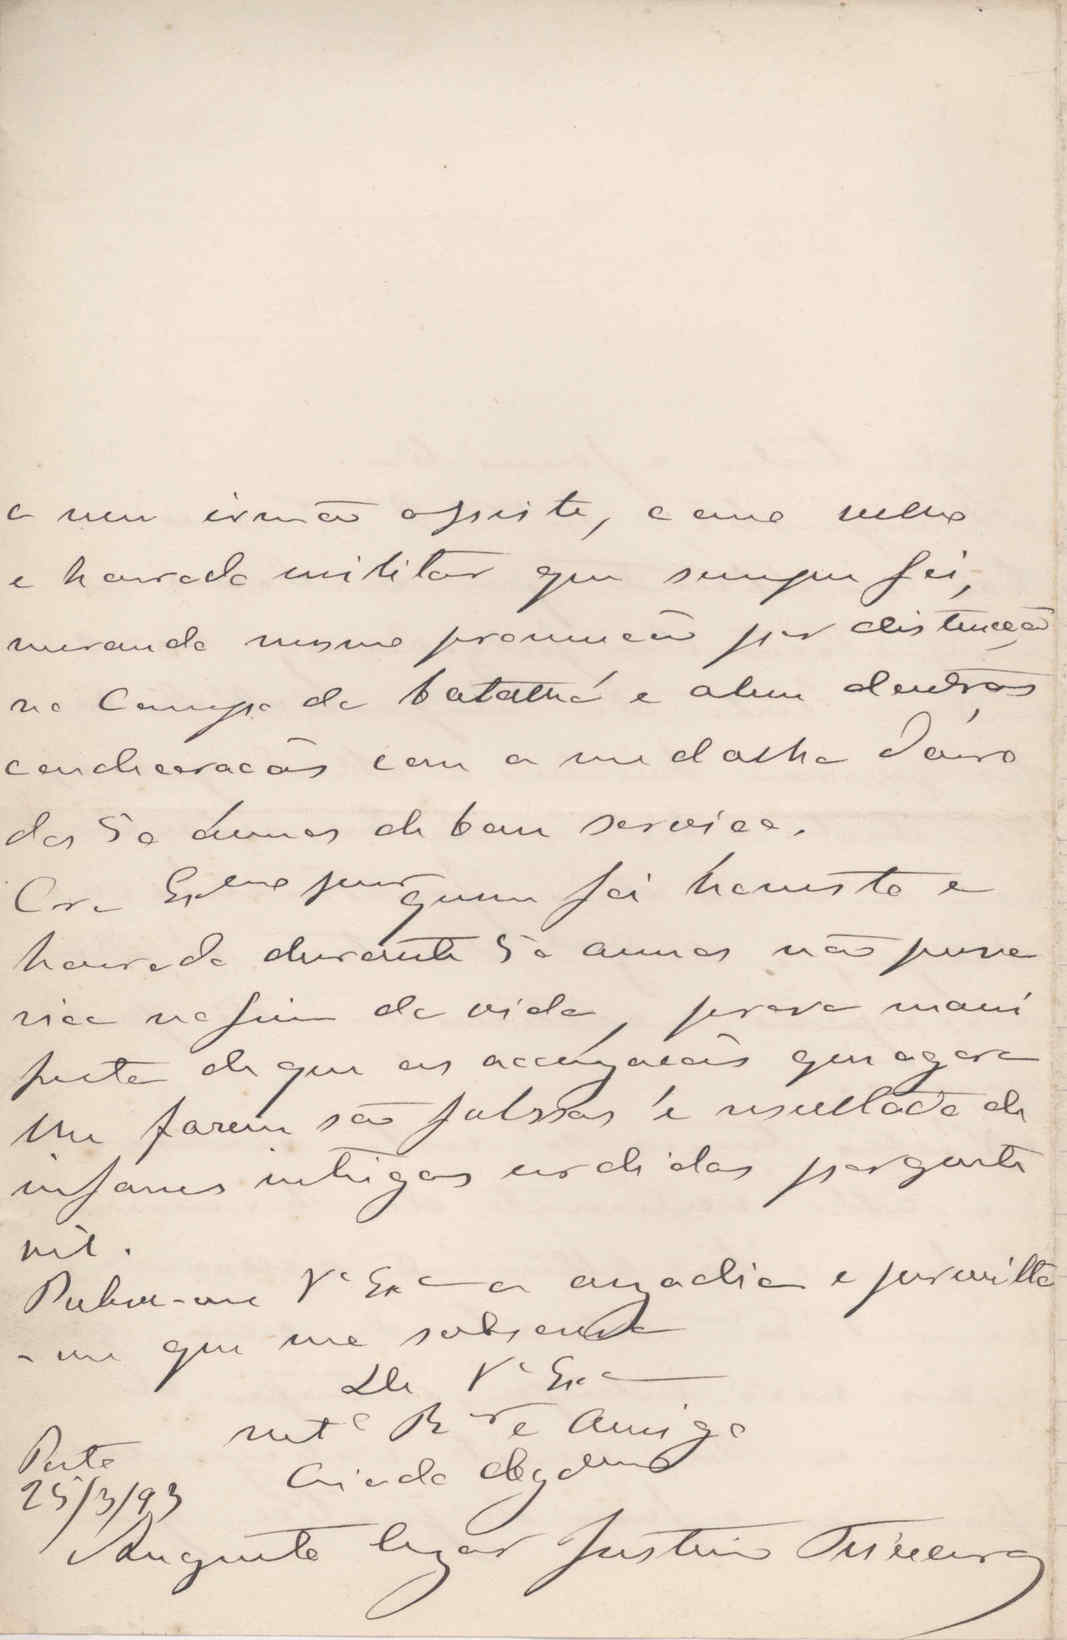 a meu irmão assiste, como velho
e honrado militar que sempre foi,
merecendo mesmo promoção por distincção
no Campo da batalha e alem d'outras
condecorações com a medalha d'ouro
dos 50 annos de bom serviço.
Ora Exmo Snr quem foi honesto e
honrado durante 50 annos não preva
rica no fim da vida, prova mani
festa de que as accusações que agora
lhe fazem são falssas e resultado de
infames intrigas urdidas por gente
vil.
Releve-me Va Exa a ousadia e permitta
-me que me subscreva
De Va Exa
mto Ror e Amigo
Criado obgdmo
Porto
25/3/93
Augusto Cezar Justino Teixeira